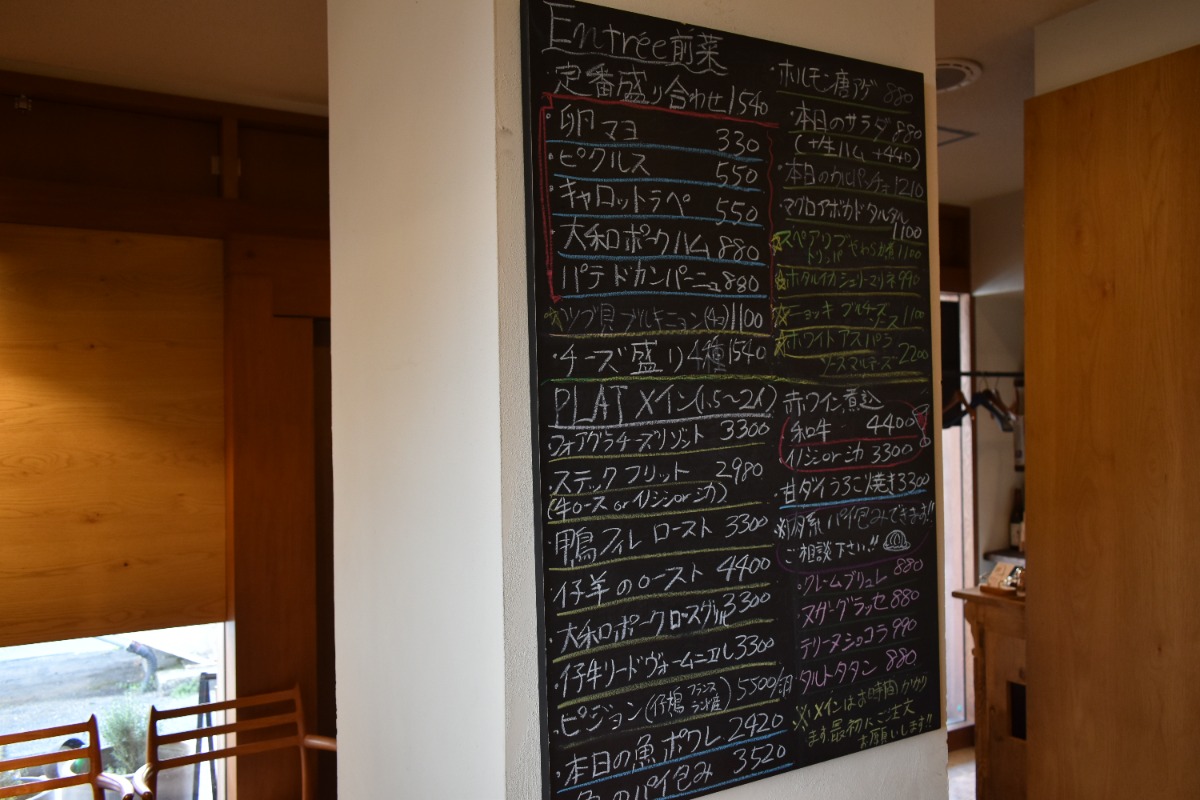 Entrée 前菜
定番盛り合わせ 1540
・卵マヨ 330
・ピクルス 550
・キャロットラペ 550
・大和ポークハム 880
・パテドカンパーニュ 880
☆ツブ貝ブルギニョン(4コ) 1100
・チーズ盛り4種 1540
PLAT メイン(1.5〜2人)
・フォアグラチーズリゾット 3300
・ステックフリット 2980
(牛ロース or イノシシ or シカ)
・鴨フィレロースト 3300
・仔羊のロースト 4400
・大和ポークロースグリル 3300
・仔牛リードヴォームニエル 3300
・ピジョン(仔鳩 フランス ランド産) 5500
・本日の魚ポワレ 2420
魚のパイ包み 3520
・ホルモン唐アゲ 880
・本日のサラダ 880
(+生ハム +440)
・本日のカルパッチョ 1210
・マグロアボカドタルタル
1100
☆スペアリブ トリッパ やわらか煮 1100
☆ホタルイカシェリーマリネ 990
☆ニョッキ ブルチーズ
ソース 1100
☆ホワイトアスパラ
ソースマルテーズ 2200
赤ワイン煮込
・和牛 4400
・イノシシ or シカ 3300
・甘ダイうろこ焼き 3300
パイ包みできます!!
ご相談下さい!!
・クレームブリュレ 880
・ヌガーグラッセ 880
・テリーヌショコラ 990
・タルトタタン 880
※メインはお時間カカリ
ます。最初にご注文
お願いします!!